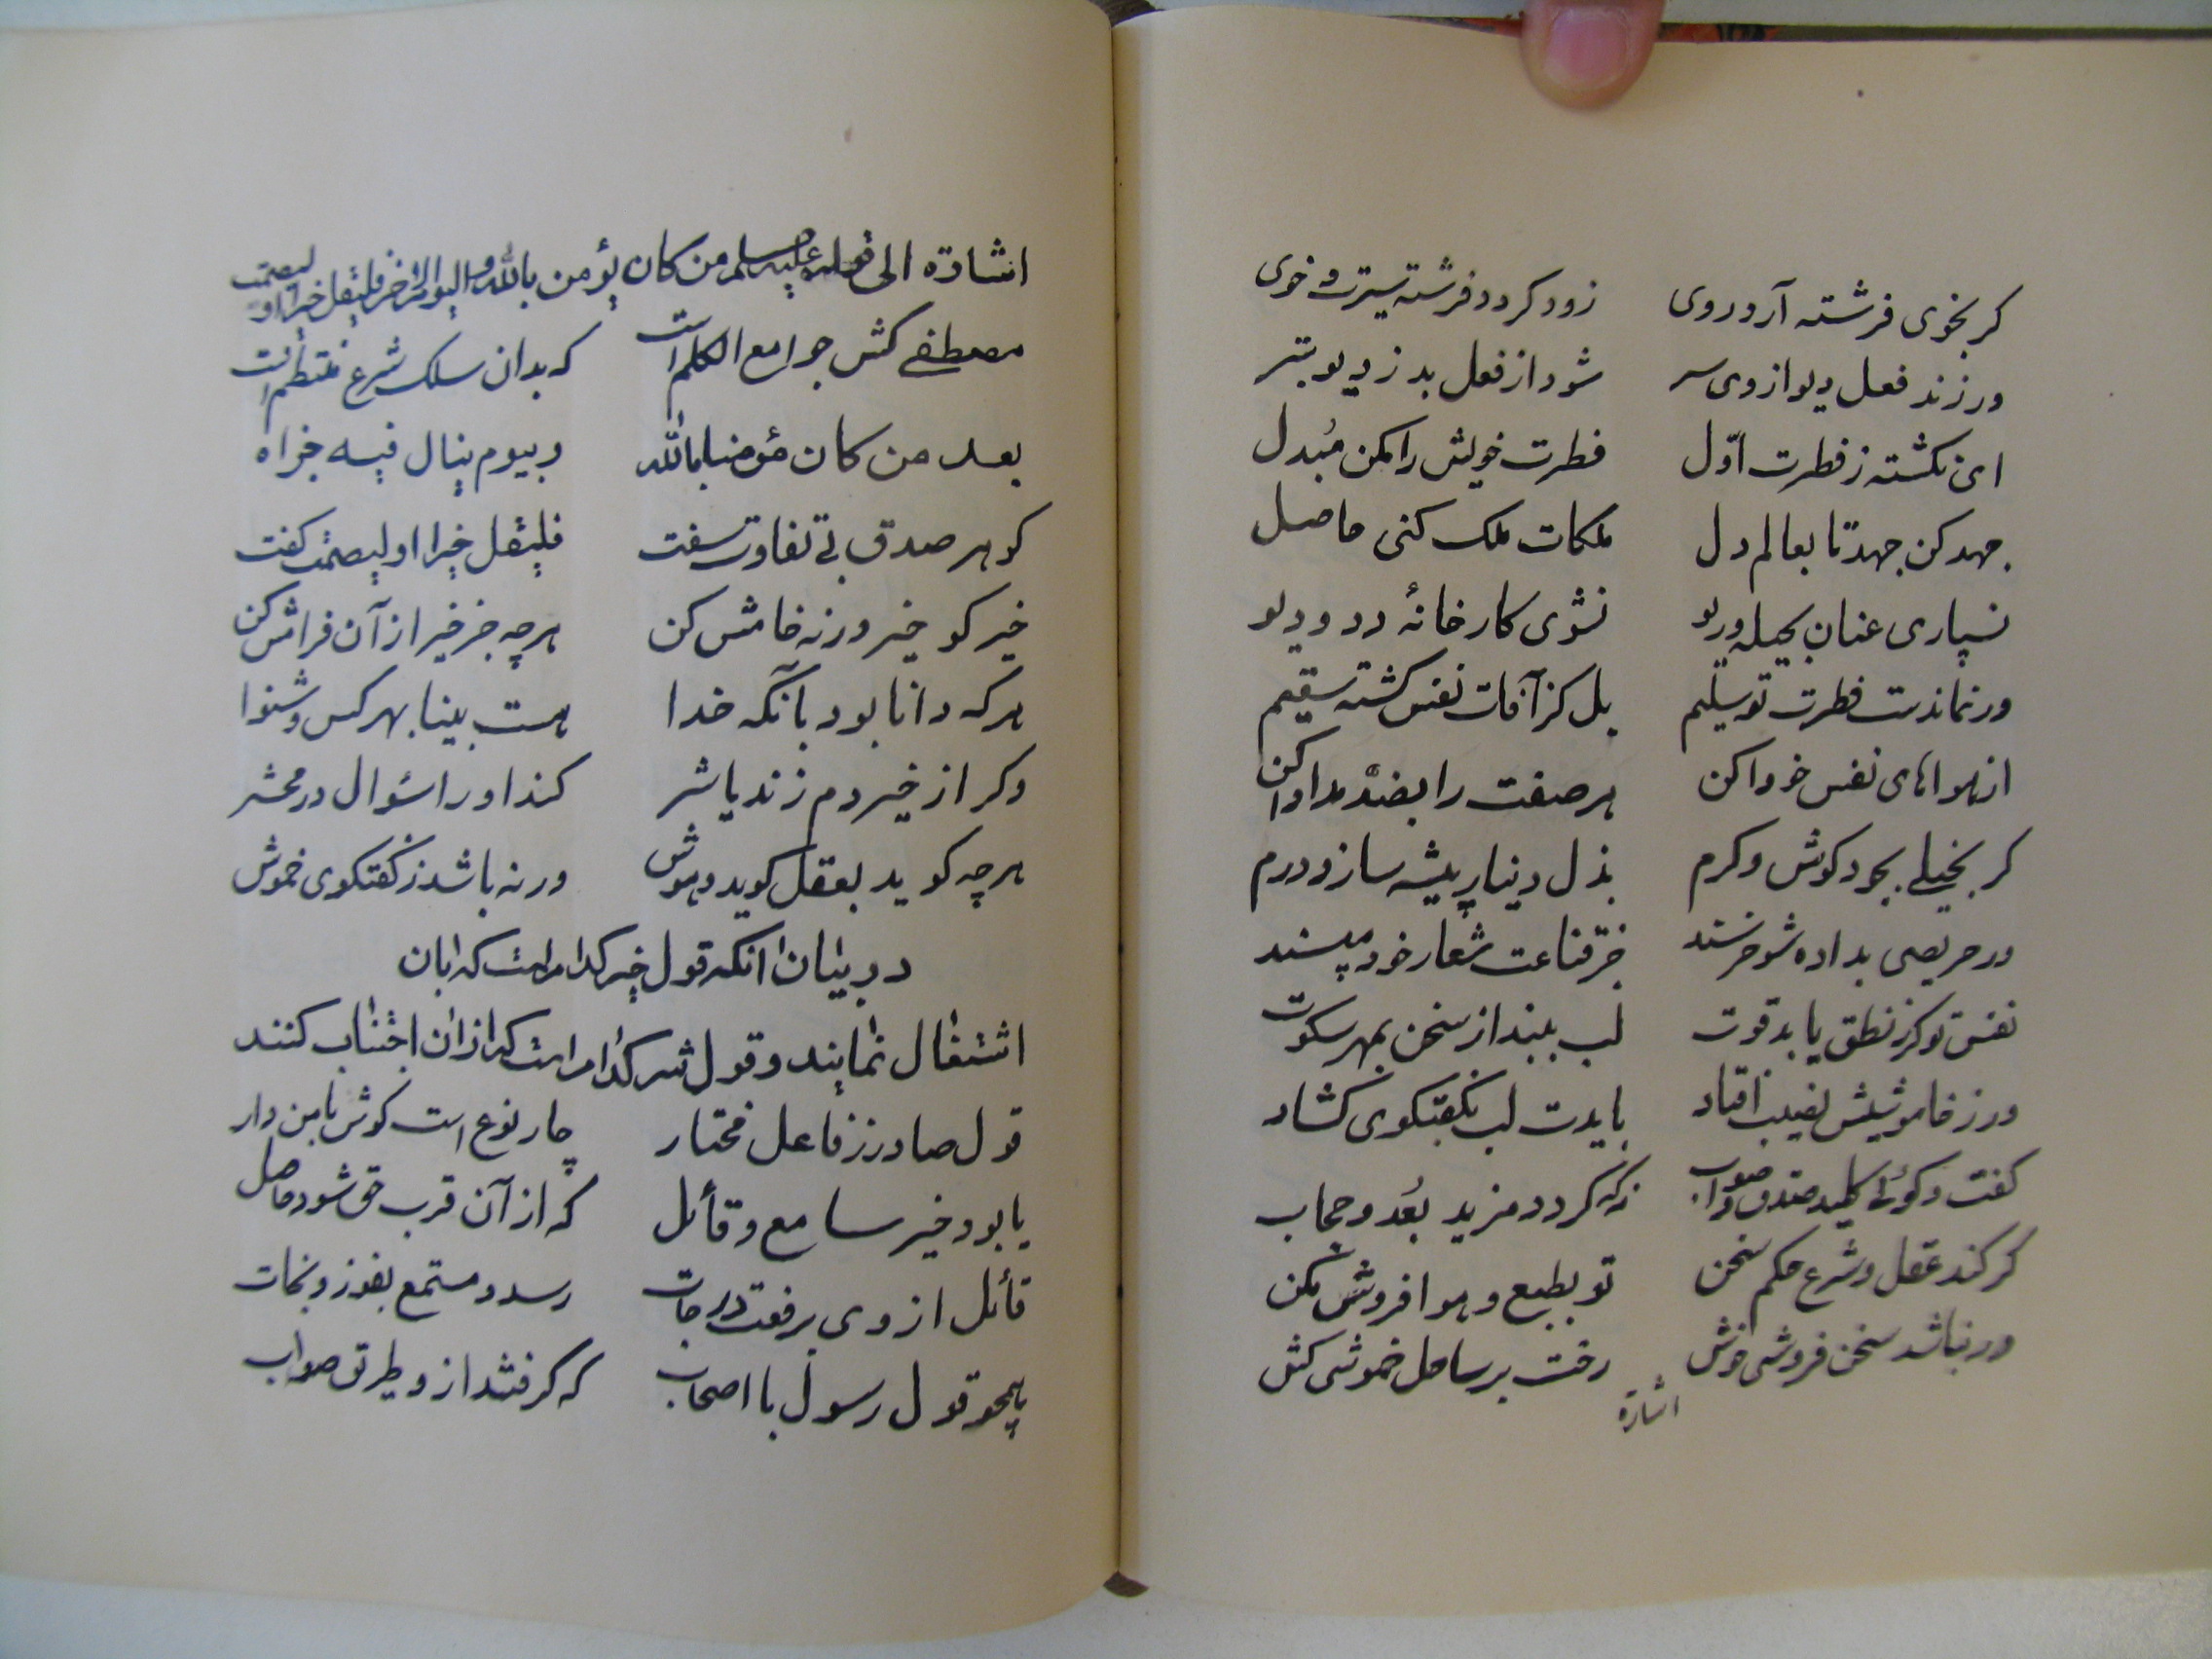 کر بخوی فرشته آرو روی زود کردد فرشته سیرت و خوی
ور زند فعل دیو از وی سر شود از فعل بد ز دیو بتر
ای نکشته ز فطرت اوّل فطرت خویش را مکن مُبدل
جهد کن جهد تا بعالم دل ملکات ملک کنی حاصل
نسپاری عنان بحیله و ریو نشوی کارخانهٔ دد و دیو
ور نماندست فطرت تو سلیم بل کز آفات نفس کشته سقیم
از هواهای نفس خود واکن هر صفت را بضدّ مداوا کن
کر بخیلی بجود کوش و کرم بذل دینار پیشه ساز و درم
ور حریصی بداده شو خرسند جز قناعت شعار خود مپسند
نفس تو کز نطق یابد قوت لب ببند از سخن بمهر سکوت
ور ز خاموشیش بعیب افتاد بایدت لب بکفتکوی کشاد
کفت و کوئی کلید صدق و صواب نه که کردد مزید بُعد و حجاب
کر کند عقل و شرع حکم سخن تو بطبع و هوا فروش مکن
ور نباشد سخن فروشی خوش رخت بر ساحل خموشی کش
اشارة
اشارة الی قوله علیه سلم من کان یؤمن بالله والیوم الآخر فلیقل خیرا او لیصمت
مصطفی کش جوامع الکلم است که بدان سلک شرع منتظم است
بعد من کان مؤمنا بالله وبیوم ینال فیه جزاه
کوهر صدق بی تفاوت سفت فلیقل خیرا او لیصمت کفت
خیر کو خیر ورنه خامش کن هرچه جز خیر از آن فرامش کن
هرکه دانا بود بآنکه خدا هست بینا بهر کس و شنوا
وکر از خیر دم زند یا شر کند او را سئوال در محشر
هرچه کوید بعقل کوید و هوش ورنه باشد ز کفتکوی خموش
در بیان انکه قول خیر کدام است که بان
اشتغال نمایند و قول شر کدام است که از ان اجتناب کنند
قول صادر ز فاعل مختار چار نوع است کوش با من دار
یا بود خیر سامع و قائل که از آن قرب حق شود حاصل
قائل از وی برفعت درجات رسد و مستمع بفوز و نجات
همچو قول رسول با اصحاب که کرفتند از و طریق صواب